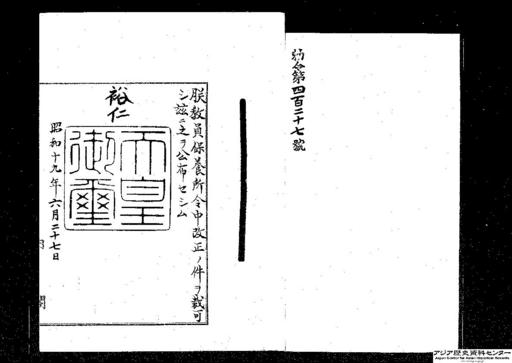 勅令第四百二十七號
朕教員保養所令中改正ノ件ヲ裁可
シ茲ニ之ヲ公布セシム
裕仁
天皇
御璽
昭和十九年六月二十七日
閣
アジア歴史資料センター
Japan Center for Asian Historical Records